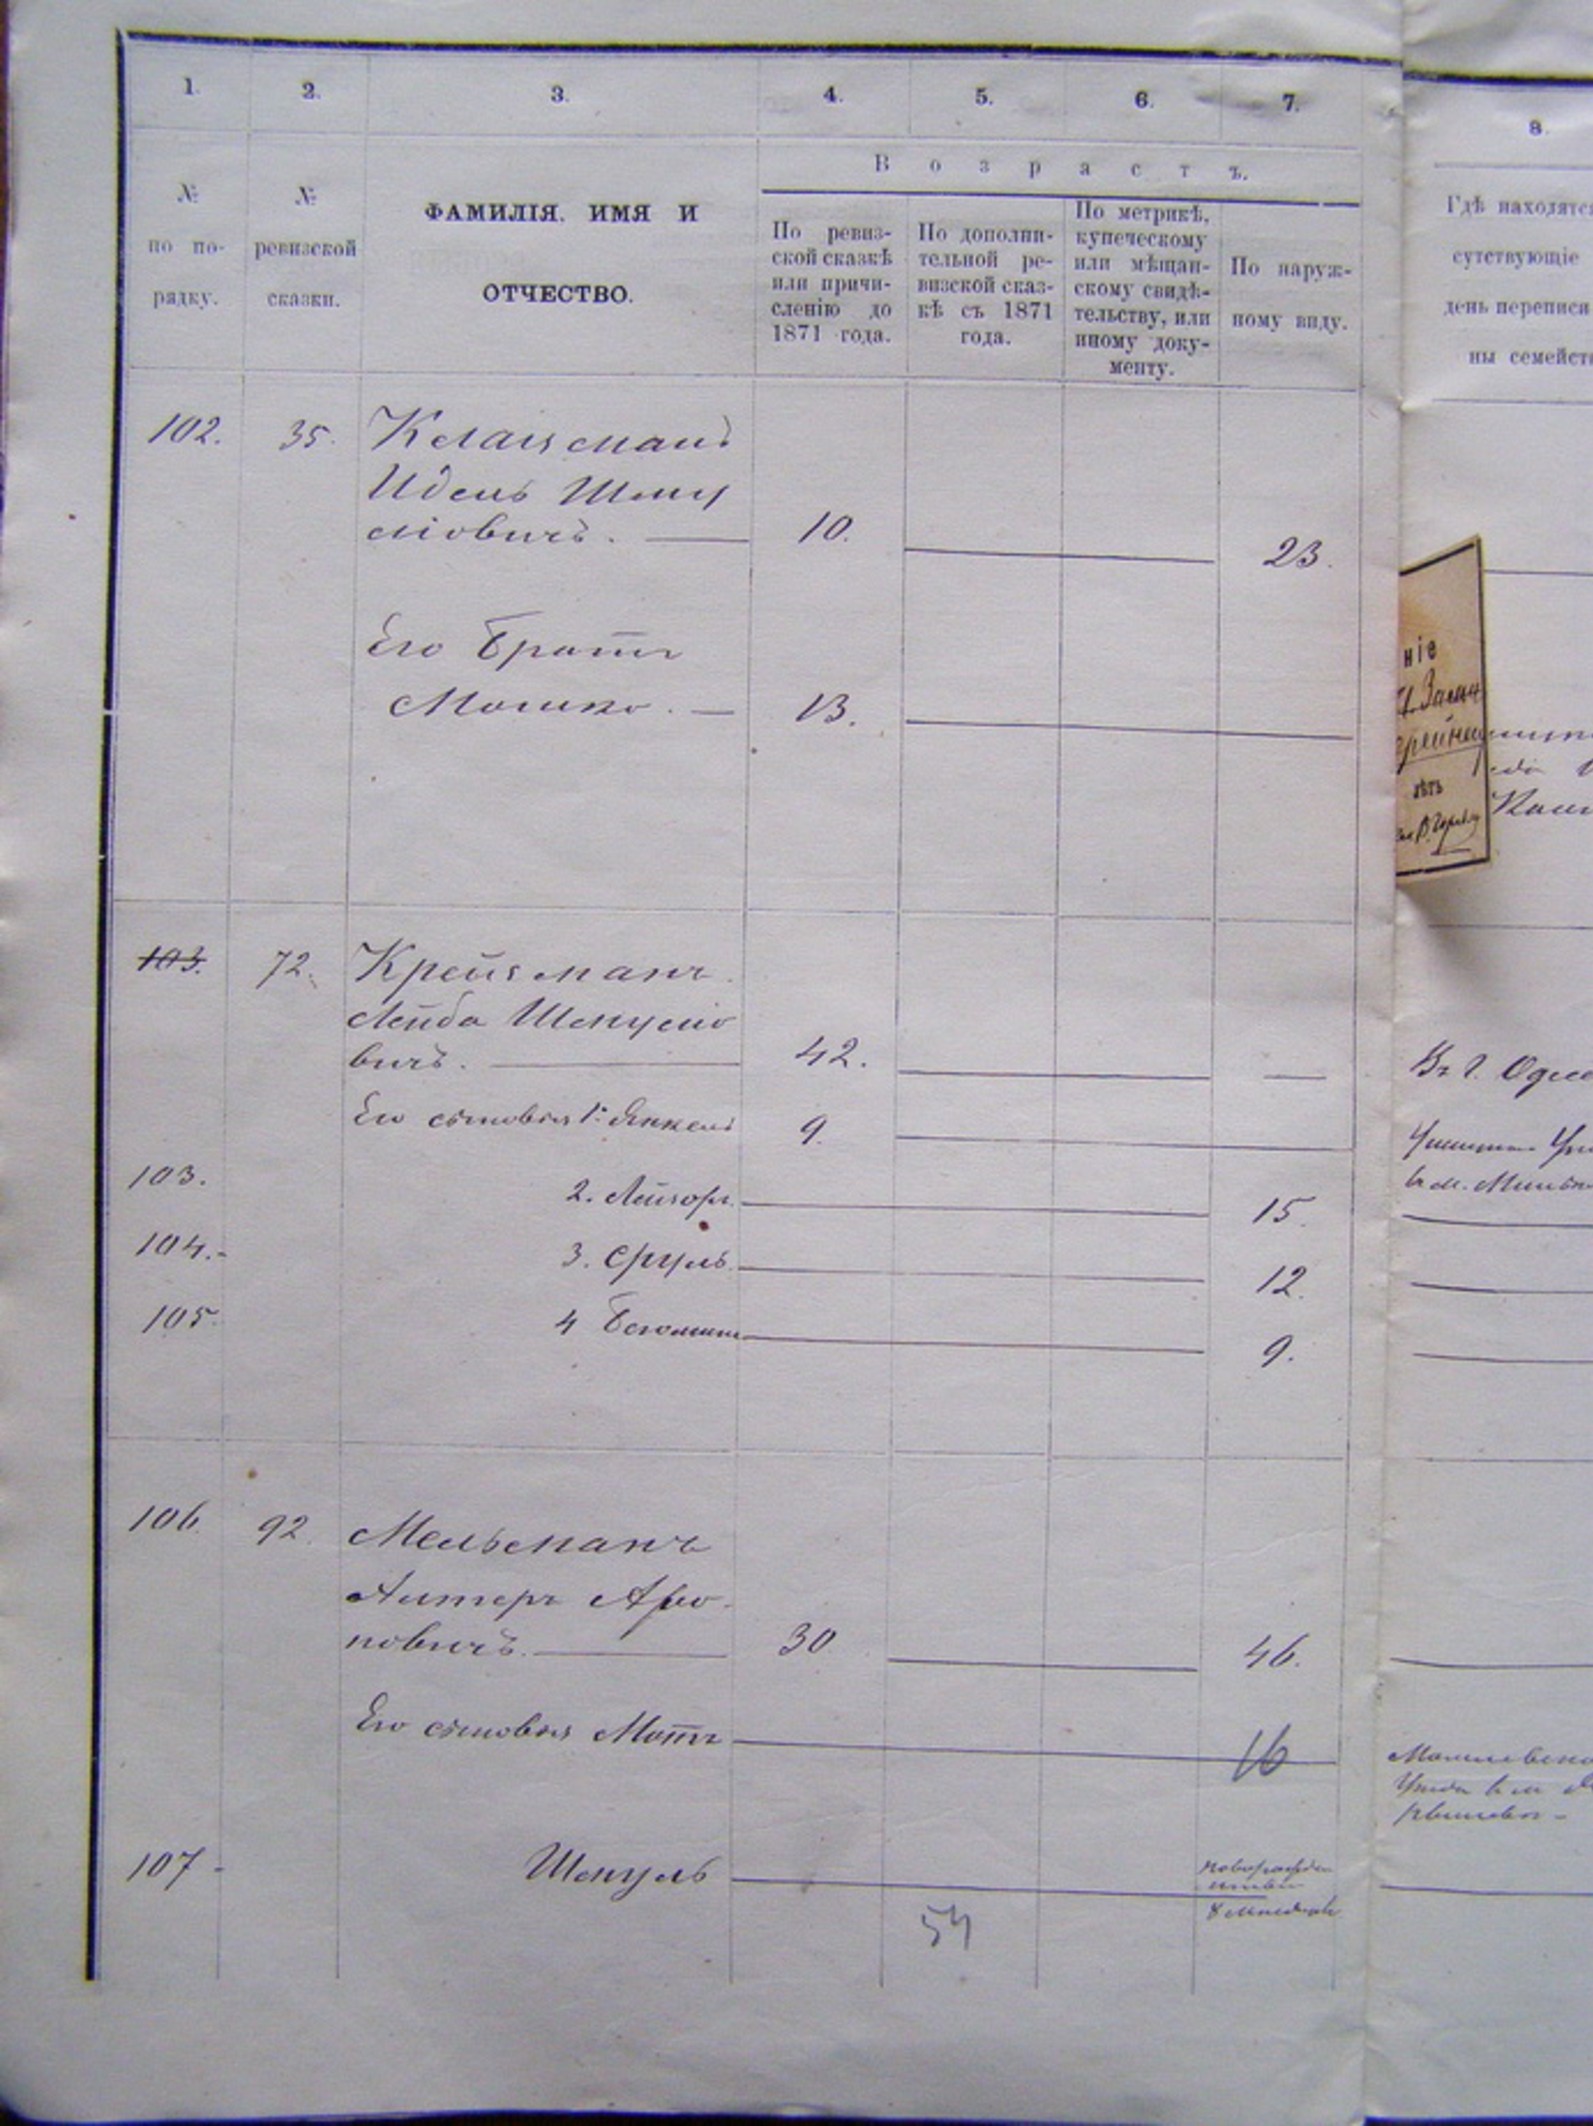 1. 2. 3. 4. 5. 6. 7. 8.
Возрастъ.
№
по по-
рядку.
№
ревизской
сказки.
ФАМИЛІЯ. ИМЯ И
ОТЧЕСТВО.
По ревиз-
ской сказкѣ
или причи-
сленію до
1871 года.
По дополни-
тельной ре-
визской сказ-
кѣ съ 1871
года.
По метрикѣ,
купеческому
или мѣщан-
скому свидѣ-
тельству, или
иному доку-
менту.
По наруж-
ному виду.
Гдѣ находятся
сутствующіе
день переписи
ны семейств
102. 35.
Идель Шму
ліовичъ. 10. 23.
Его Братъ
Мошко. 13.
ніе
лѣтъ
103. 72. Крейзманъ
Лейба Шмуліо
вичъ. 42. Въ г. Одес
Его сыновья 1. Янкель 9.
103. 2. Лейзоръ. 15.
104. 3. Сруль. 12.
105. 4 9.
106. 92. Мельманъ
Алтеръ Аро-
новичъ. 30 46.
Его сыновья Мотъ 16
107 Шмуль
54